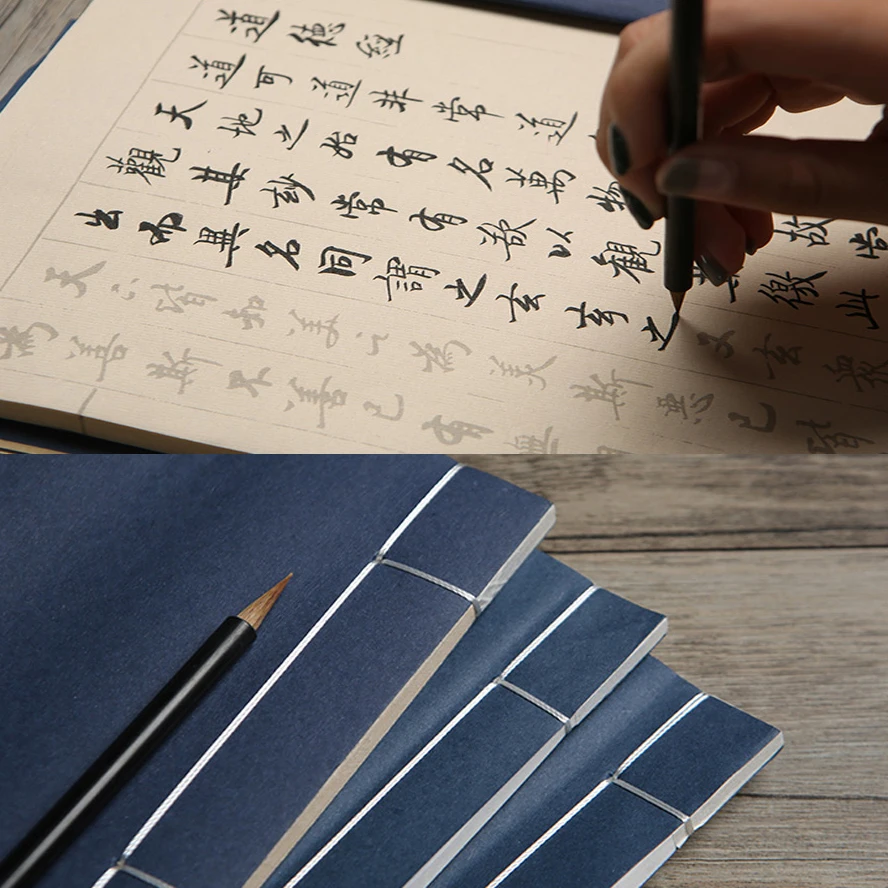 道德經
道可道非常道
天地之始有名萬物故常
觀其妙常有欲以觀其徼此
出而異名同謂之玄玄之又玄眾
天下皆知美之為美斯惡已皆
為善斯不善已有無